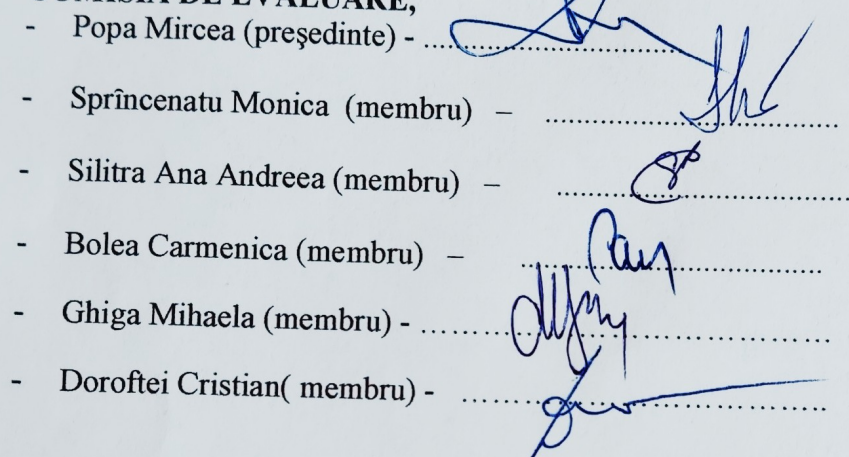 DE EVALUARE,
- Popa Mircea (preşedinte) - ........................................
- Sprîncenatu Monica (membru) – ........................................
- Silitra Ana Andreea (membru) – ........................................
- Bolea Carmenica (membru) – ........................................
- Ghiga Mihaela (membru) - ........................................
- Doroftei Cristian( membru) - ........................................